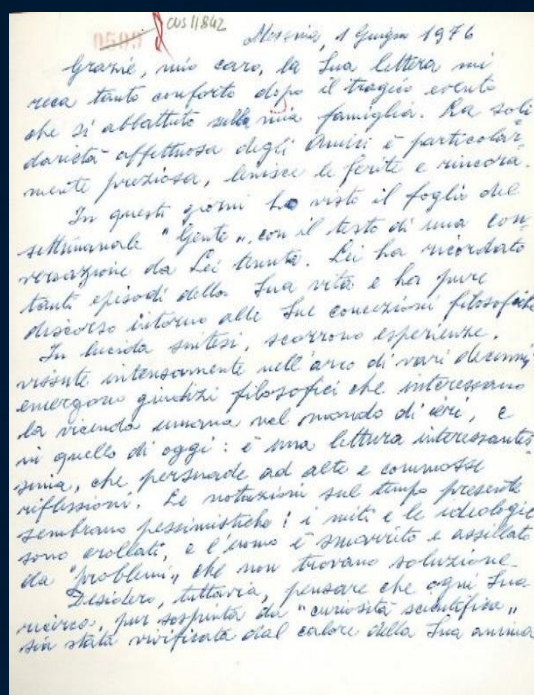 0509 CUS 11842
Messina, 1 Giugno 1976
Grazie, mio caro, la Sua lettera mi
reca tanto conforto dopo il tragico evento
che si abbattuto sulla mia famiglia. La soli
darietà affettuosa degli Amici è particolar-
mente preziosa, lenisce le ferite e rincora.
In questi giorni ho visto il foglio del
settimanale "Gente", con il testo di una con-
versazione da Lei tenuta. Lei ha ricordato
tanti episodi della Sua vita e ha pure
discorso intorno alle Sue concezioni filosofiche
In lucida sintesi, scorrono esperienze,
vissute intensamente nell'arco di vari decenni,
emergono giudizi filosofici che interessano
la vicenda umana nel mondo di ieri, e
in quello di oggi: è una lettura interessantis
sima, che persuade ad alte e commosse
riflessioni. Le notazioni sul tempo presente
sembrano pessimistiche: i miti e le ideologie
sono crollati, e l'uomo è smarrito e assillato
da "problemi" che non trovano soluzione.
Desidero, tuttavia, pensare che ogni Sua
ricerca, pur sospinta da "curiosità scientifica"
sia stata vivificata dal calore della Sua anima